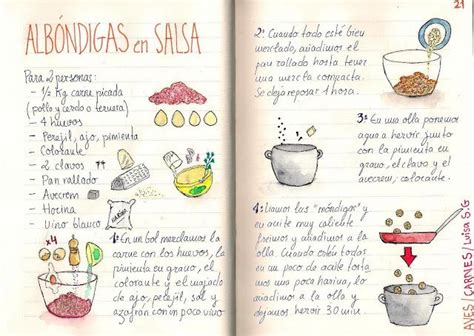 ALBÓNDIGAS en SALSA
Para 2 personas:
- 1/2 Kg carne picada
(pollo y cerdo o ternera)
- 4 huevos
- Perejil, ajo, pimienta
- Colorante
- 2 clavos
- Pan rallado
- Avecrem
- Harina
- Vino blanco
HARINA
x4
1ª: En un bol mezclamos la
carne con los huevos, la
pimienta en grano, el
colorante y el majado
de ajo, perejil, sal y
azafran con un poco vino
21
2ª: Cuando todo esté bien
mezclado, añadimos el
pan rallado hasta tener
una mezcla compacta.
Se deja reposar 1 hora.
3ª: En una olla ponemos
agua a hervir junto
con la pimienta en
grano, el clavo y el
avecrem, colorante.
4ª: Vamos los "móndigos" y
en aceite muy caliente
freimos y añadimos a la
olla. Cuando estén todas
en un poco de aceite tosta
mos una poca harina, lo
añadimos a la olla y
dejamos hervir 30 min.
CARNES/